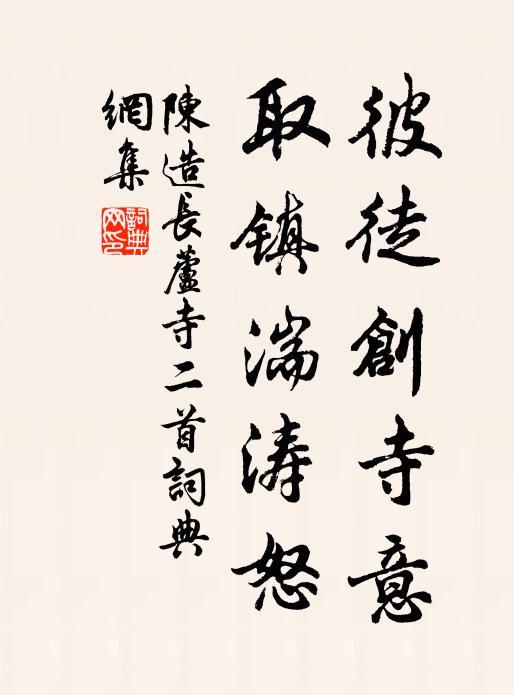 彼徒創寺意
取鎮湍涛怒
陳造長蘆寺二首詞典
網集
詞典
网印